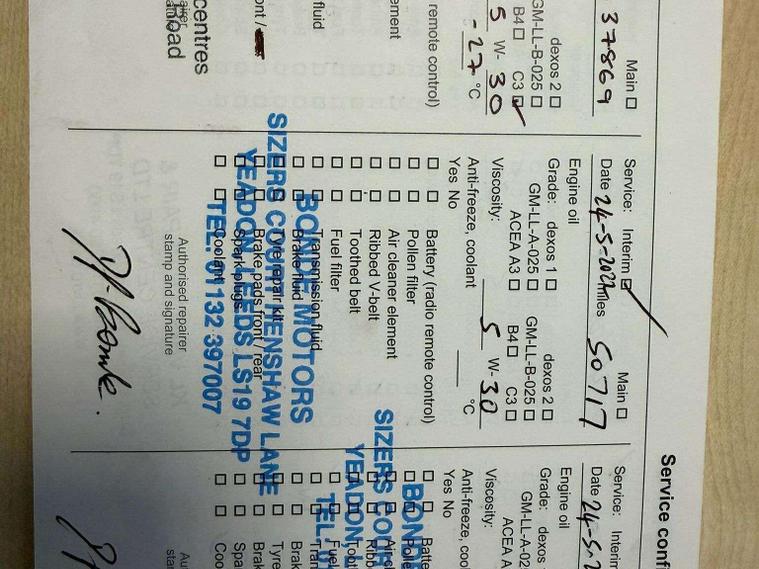 Service conf
Main ☐
37869
dexos 2 ☐
GM-LL-B-025 ☐
B4 ☐ C3 ☑
5 W- 30
-27 °C
remote control)
ement
fluid
ont /
centres
Road
Service: Interim ☑ Main ☐
Date 24-5-2021 miles 50717
Engine oil
Grade: dexos 1 ☐ dexos 2 ☐
GM-LL-A-025 ☐ GM-LL-B-025 ☐
ACEA A3 ☐ B4 ☐ C3 ☐
Viscosity: 5 W- 30
Anti-freeze, coolant °C
Yes No
☐ ☐ Battery (radio remote control)
☐ ☐ Pollen filter
☐ ☐ Air cleaner element
☐ ☐ Ribbed V-belt
☐ ☐ Toothed belt
☐ ☐ Fuel filter
☐ ☐ Transmission fluid
☐ ☐ Brake fluid
☐ ☐ Tyre repair kit
☐ ☐ Brake pads front / rear
☐ ☐ Spark plugs
☐ ☐ Coolant
BONDE MOTORS
SIZERS COURT HENSHAW LANE
YEADON LEEDS LS19 7DP
TEL: 01132 397007
Authorised repairer
stamp and signature
Service: Interim
Date 24-5-2
Engine oil
Grade: dexos
GM-LL-A-02
ACEA A
Viscosity:
Anti-freeze, coo
Yes No
☐ ☐ Batte
☐ ☐ Poll
☐ ☐ Air cl
☐ ☐ Ribb
☐ ☐ Toot
☐ ☐ Fuel
☐ ☐ Tran
☐ ☐ Brak
☐ ☐ Tyre
☐ ☐ Brak
☐ ☐ Spa
☐ ☐ Coo
BOND
SIZERS COU
YEADON
TEL: 0
Au
sta